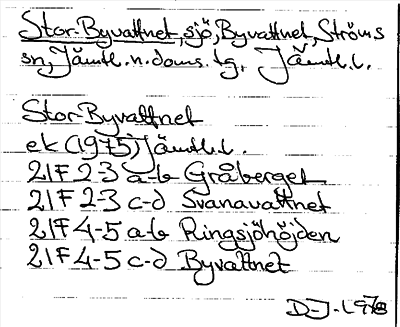 Stor-Byvattnet, sjö, Byvattnet, Ströms
sn, Jämtl. n. doms. tg, Jämtl. l.
Stor-Byvattnet
ek (1975) Jämtl. l.
21F 2-3 a-b Gråberget
21F 2-3 c-d Svanavattnet
21F 4-5 a-b Ringsjöhöjden
21F 4-5 c-d Byvattnet
D-J. 1978